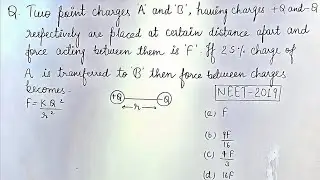 Q. Two point charges 'A' and 'B', having charges +Q and -Q
respectively are placed at certain distance apart and
force acting between them is 'F'. If 25% charge of
A is transferred to 'B' then force between charges
becomes-
F = KQ²/r²
+Q -Q
r
NEET-2019
(a) F
(b) 9F/16
(c) 4F/3
(d) 16F